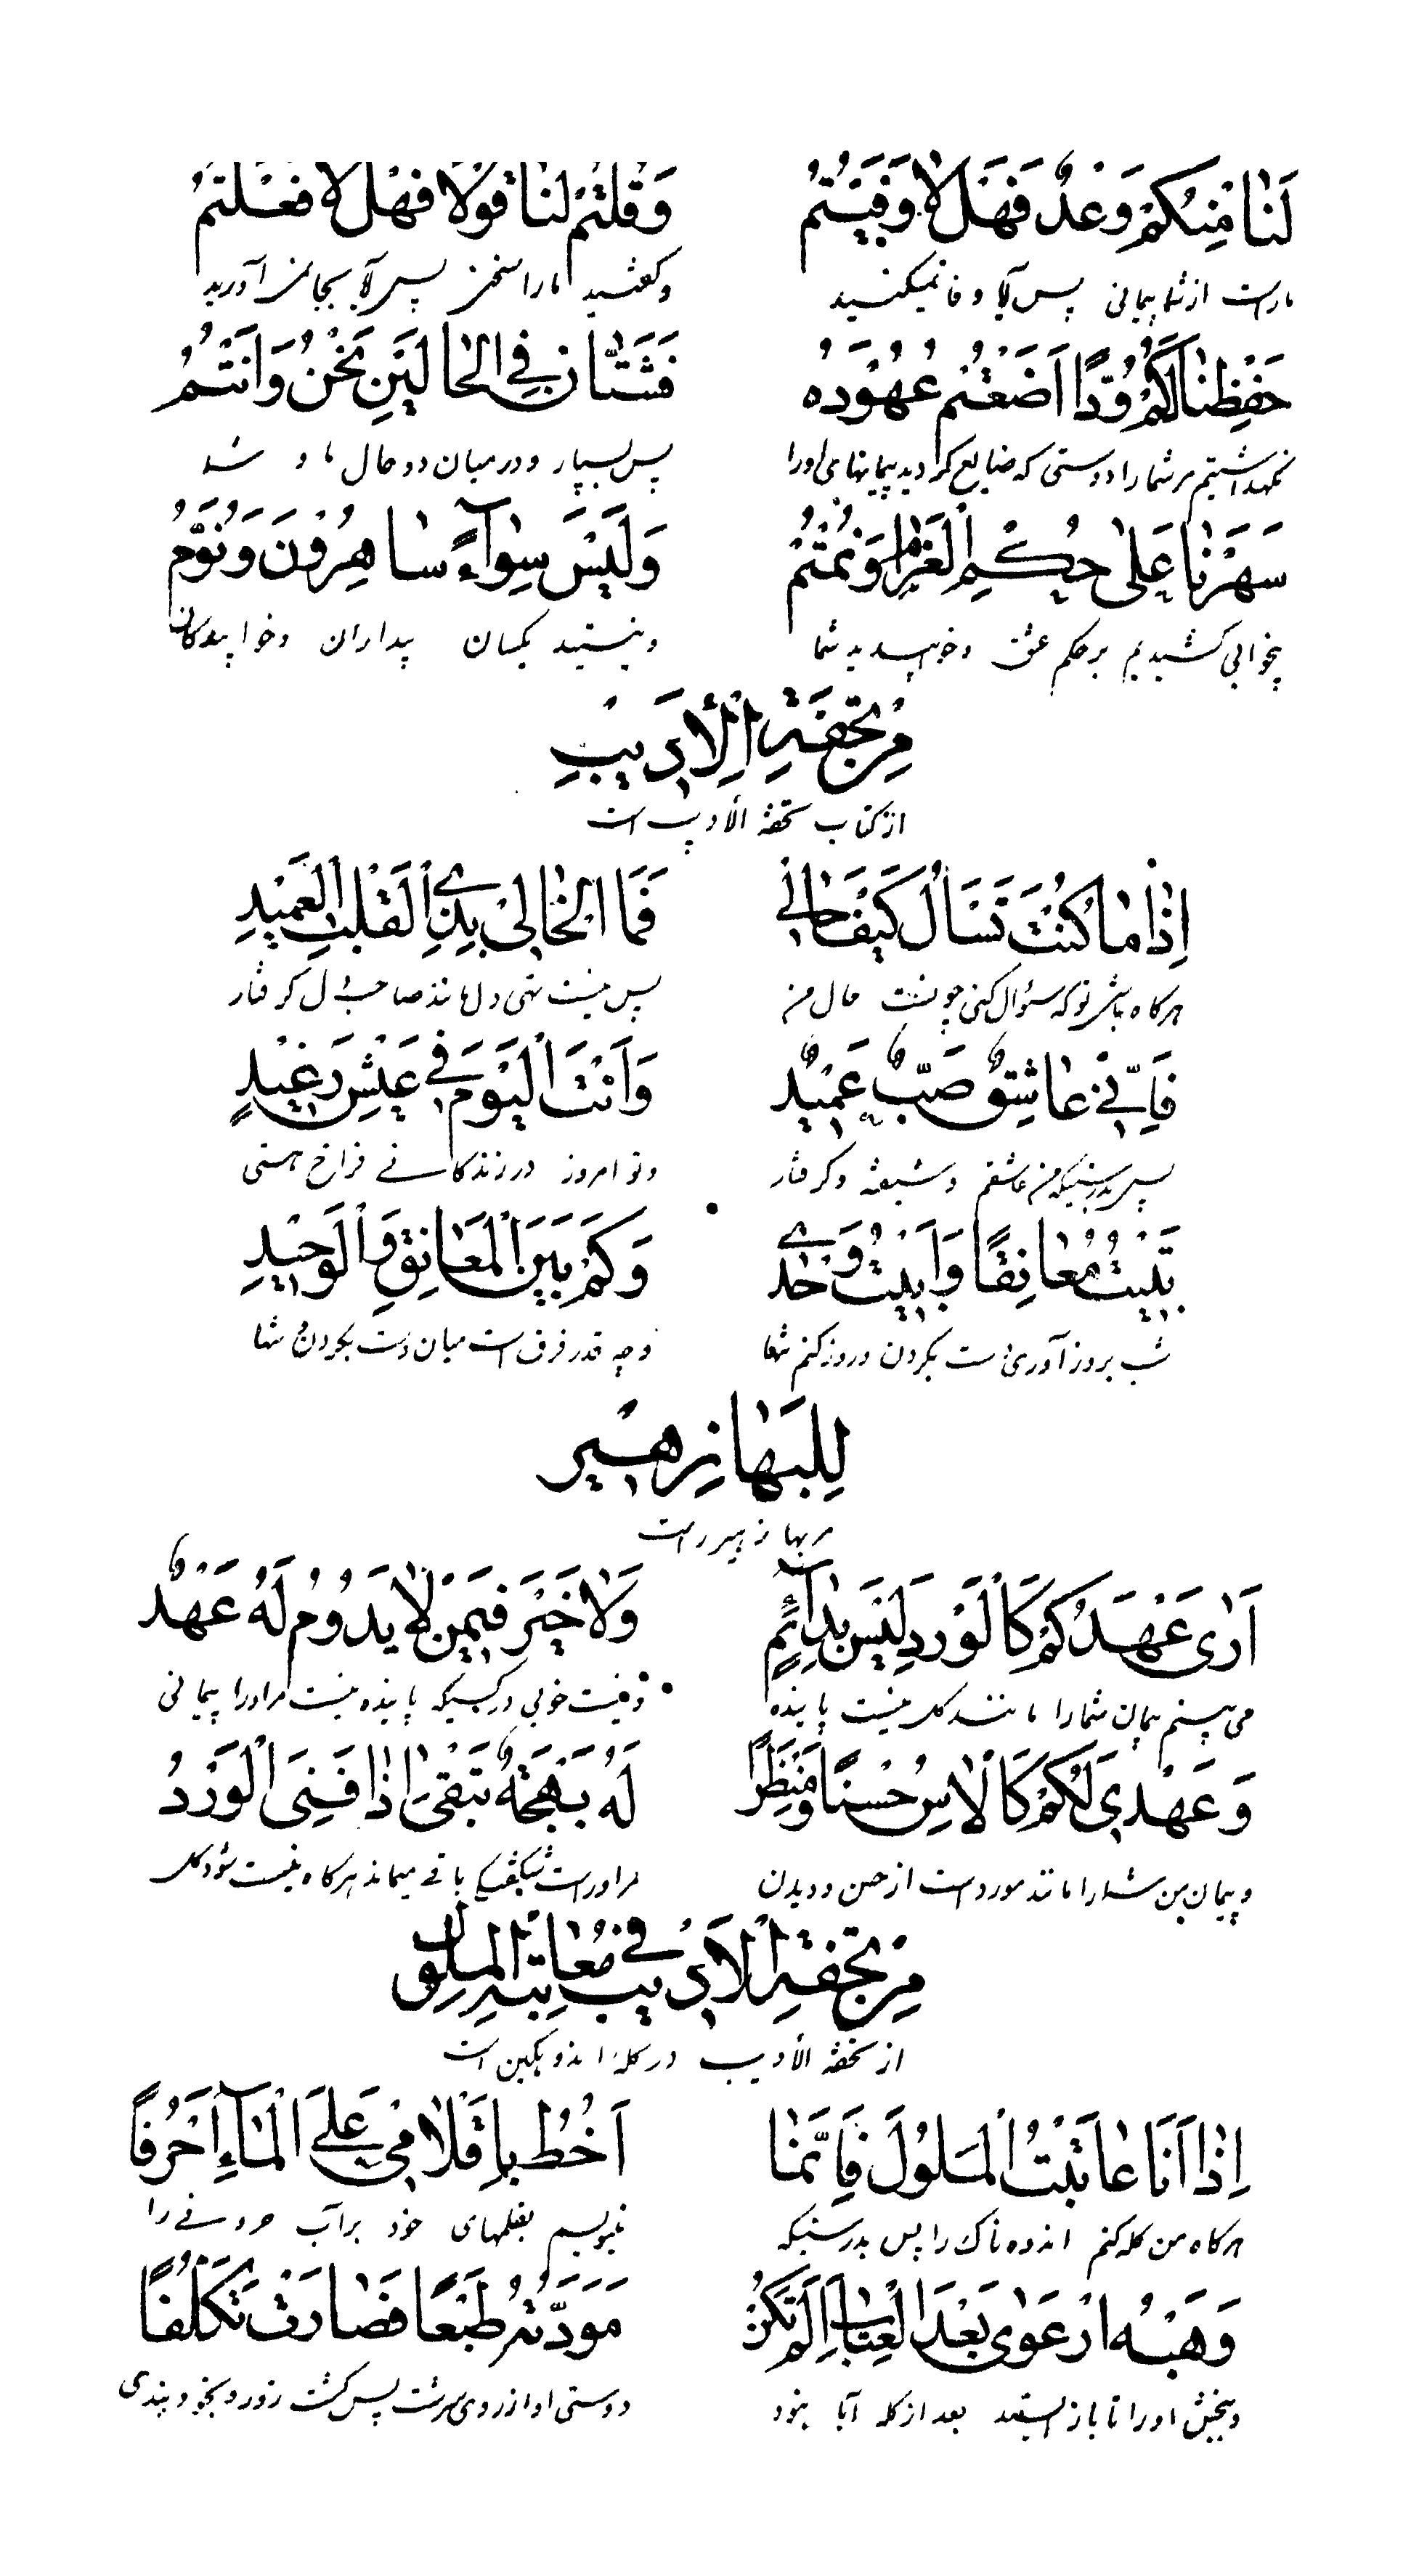 لَنَا مِنْكُمْ وَعْدٌ فَهَلَّا وَفَيْتُمُ وَقُلْتُمْ لَنَا قَوْلًا فَهَلَّا فَعَلْتُمُ
ماراست از شما پیمانی پس آیا وفا نمیکنید و گفتید مارا سخن پس آیا بجا نمی آورید
حَفِظْنَا لَكُمْ وُدًّا اَضَعْتُمْ عُهُودَهُ فَشَتَّانَ فِي الْحَالَيْنِ نَحْنُ وَاَنْتُمُ
نگهداشتیم مر شمارا دوستی که ضایع کردید پیمانهای اورا پس بسیار و در میان دو حال ما و شما
سَهِرْنَا عَلَى حُكْمِ الْغَرَامِ وَنِمْتُمُ وَلَيْسَ سِوَآءً سَاهِرُونَ وَنُوَّمُ
بیخوابی کشیدیم بر حکم عشق و خوابیدید شما و نیستند یکسان بیداران و خوابیدگان
مِنْ تُحْفَةِ الْاَدِيبِ
از کتاب تحفة الأدیب است
اِذَا مَا كُنْتَ تَسْأَلُ كَيْفَ حَالِي فَمَا الْخَالِي بِذِي الْقَلْبِ الْعَمِيدِ
هرگاه باشی تو که سؤال کنی چونست حال من پس نیست تهی دل مانند صاحب دل گرفتار
فَاِنِّي عَاشِقٌ صَبٌّ عَمِيدٌ وَاَنْتَ الْيَوْمَ فِي عَيْشٍ رَغِيدٍ
پس بدرستیکه من عاشقم و شیفته و گرفتار و تو امروز در زندگانی فراخ هستی
تَبِيتُ مُعَانِقًا وَاَبِيتُ وَحْدِي وَكَمْ بَيْنَ الْمُعَانِقِ وَالْوَحِيدِ
شب بروز آوری دست بگردن و روز کنم تنها و چه قدر فرق است میان دست بگردن و تنها
لِلْبَهَا زُهَيْرٍ
مر بها زهیر راست
اَرَى عَهْدَكُمْ كَالْوَرْدِ لَيْسَ بِدَآئِمٍ وَلَا خَيْرَ فِيمَنْ لَا يَدُومُ لَهُ عَهْدٌ
می بینم پیمان شمارا مانند گل نیست پاینده و نیست خوبی در کسیکه پاینده نیست مر اورا پیمانی
وَعَهْدِي لَكُمْ كَالْاٰسِ حُسْنًا وَمَنْظَرًا لَهُ بَهْجَةٌ تَبْقَى اِذَا فَنِيَ الْوَرْدُ
و پیمان من شمارا مانند مورد است از حسن و دیدن مر اوراست شگفتگی باقی میماند هرگاه نیست شود گل
مِنْ تُحْفَةِ الْاَدِيبِ فِي مُعَاتَبَةِ الْمَلُولِ
از تحفة الأدیب در گلهٔ اندوهگین است
اِذَا اَنَا عَاتَبْتُ الْمَلُولَ فَاِنَّمَا اَخُطُّ بِاَقْلَامِي عَلَى الْمَآءِ اَحْرُفًا
هرگاه من گله کنم اندوه ناک را پس بدرستیکه بنویسم بقلمهای خود بر آب حروفی را
وَهَبْهُ ارْعَوَى بَعْدَ الْعِتَابِ اَلَمْ تَكُنْ مَوَدَّتُهُ طَبْعًا فَصَارَتْ تَكَلُّفًا
و ببخش اورا تا باز ایستد بعد از گله آیا نبود دوستی او از روی سرشت پس گشت زور و بخود بندی